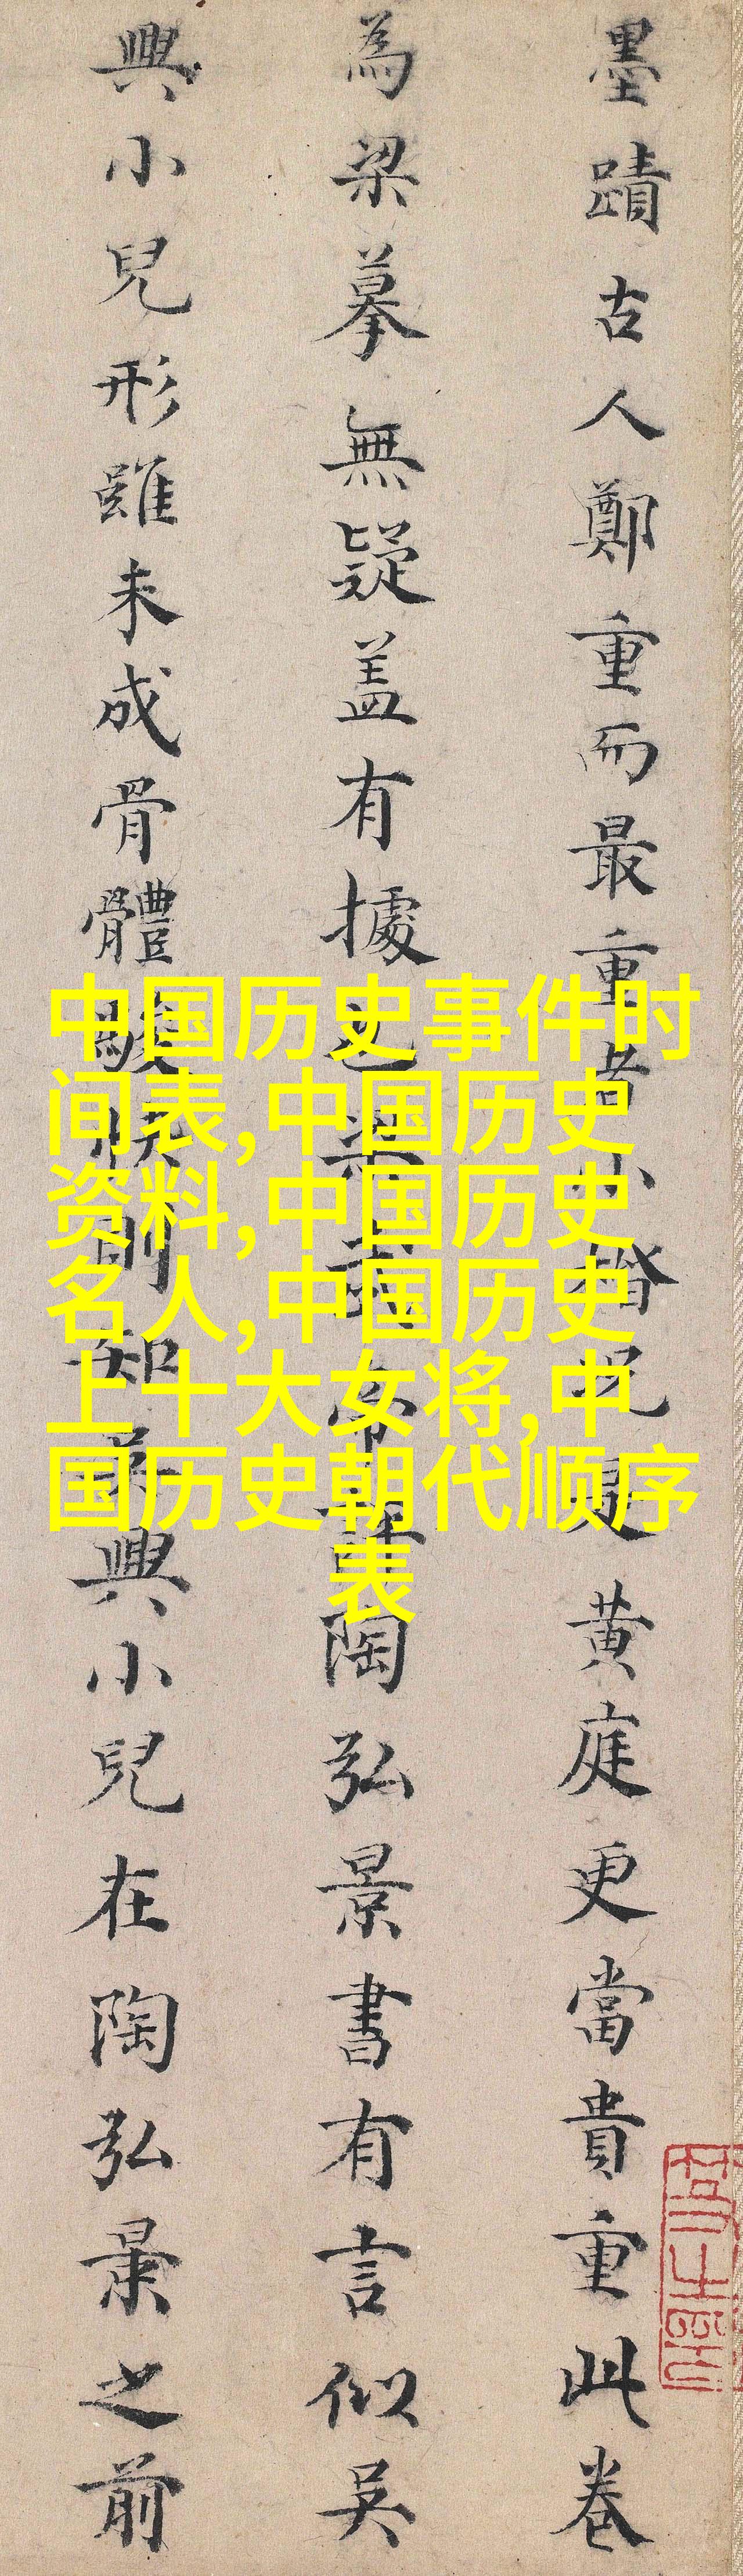 墨蹟古人鄭重而最重者小楷況是黄庭更當貴重此卷
為梁摹無疑蓋有據也梁武帝評陶弘景書有言似吴
興小兒形雖未成骨體駿快則知吴興小兒在陶弘景之前
中国历史事件时
间表,中国历史
资料,中国历史
名人,中国历史
上十大女将,中
国历史朝代顺序
表